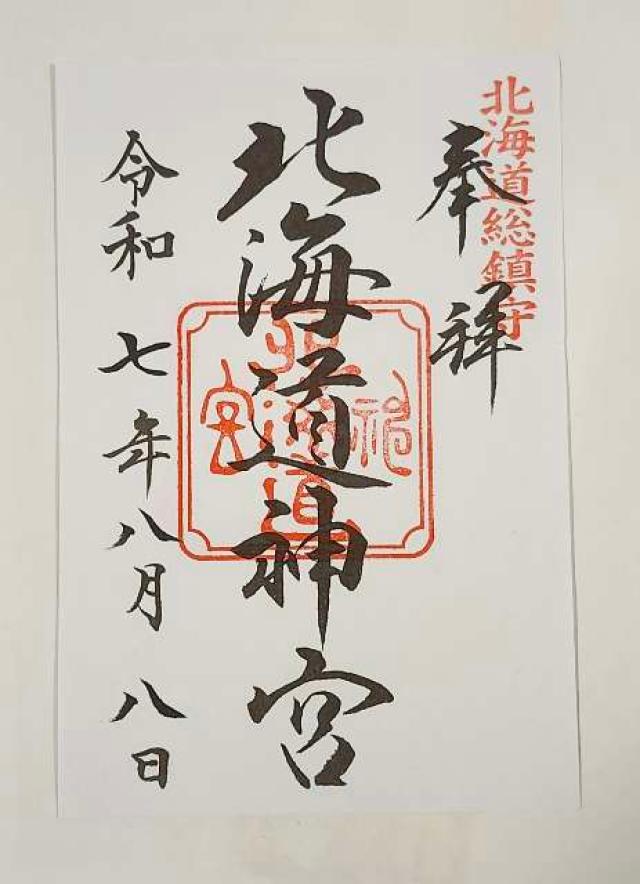 北海道総鎮守
奉拝
北海道神宮
北海道神宮
令和七年八月八日